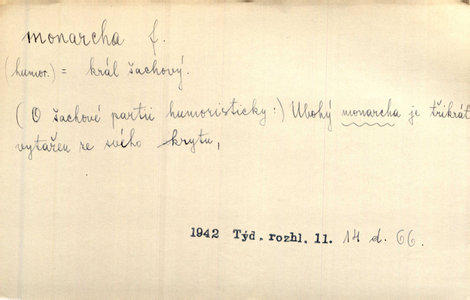 monarcha f.
(humor.) = král šachový.
(O šachové partii humoristicky:) Ubohý monarcha je třikrát
vytažen ze svého krytu,
1942 Týd. rozhl. 11. 14 d. 66.